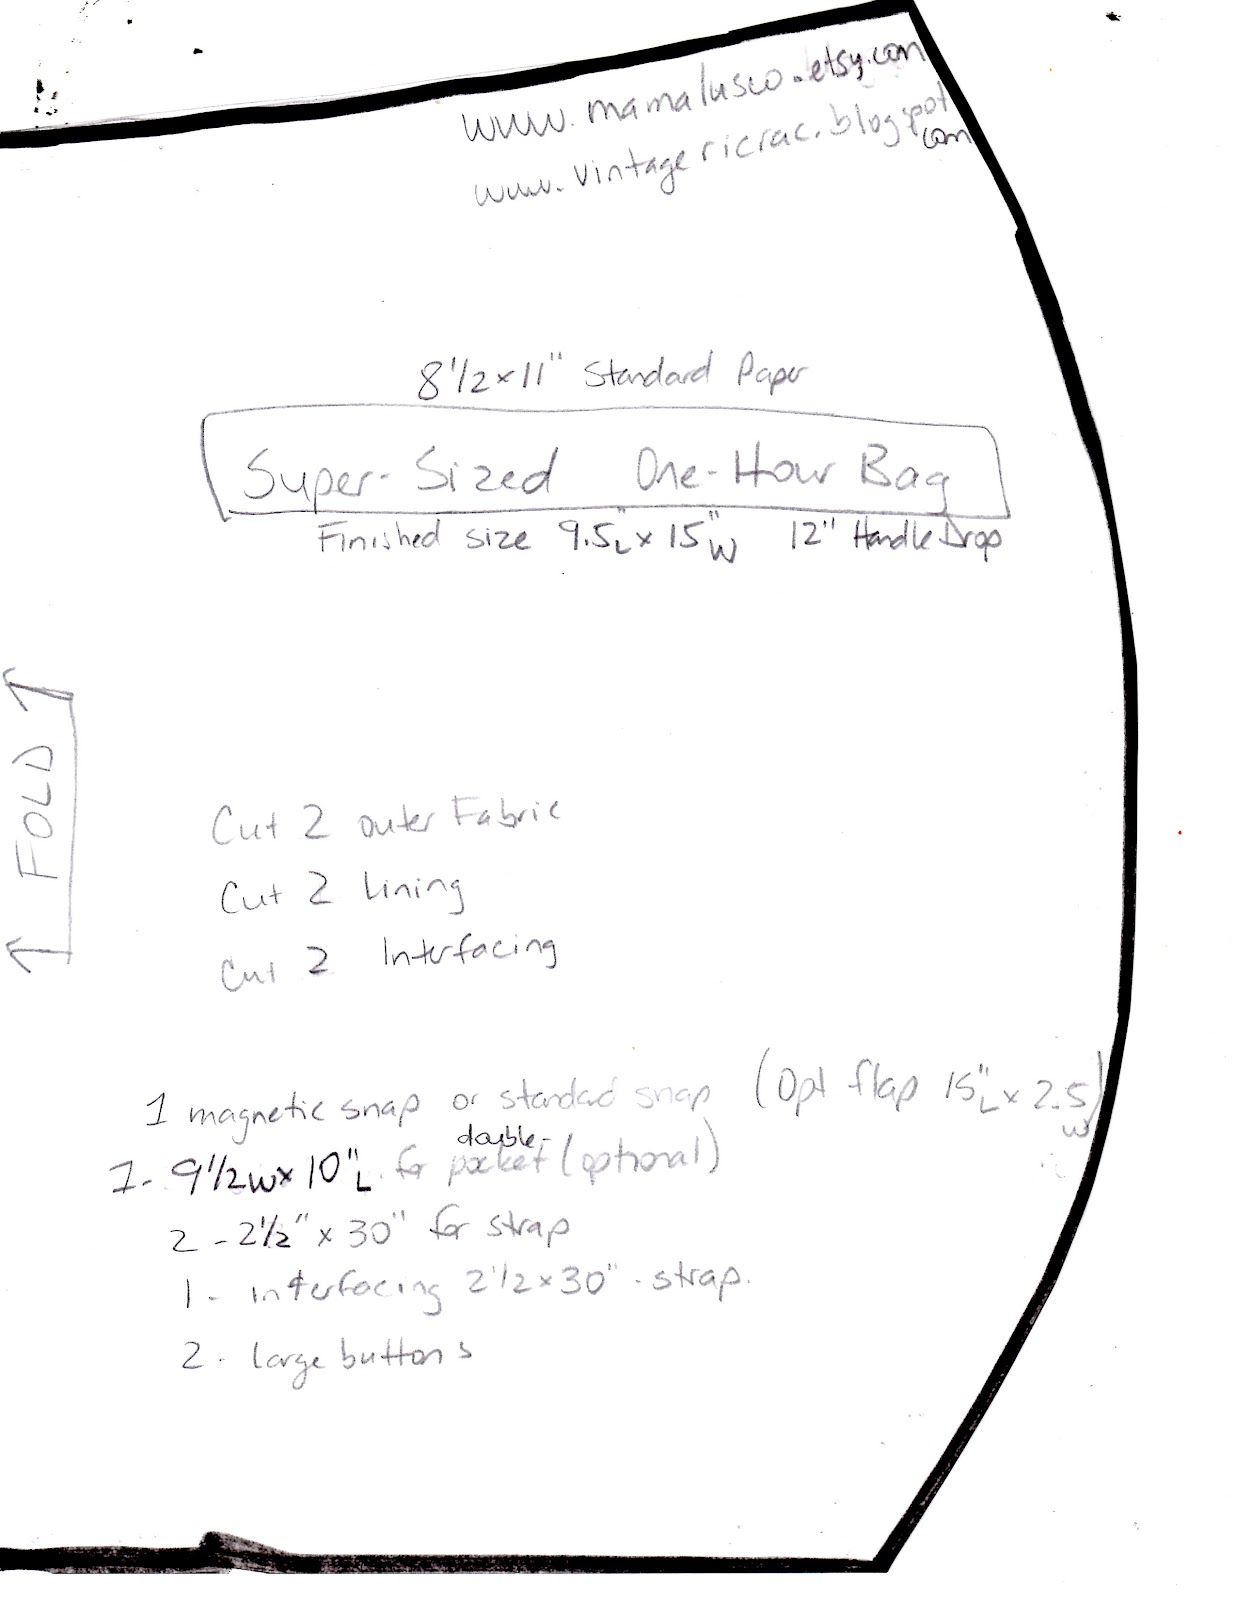 www.mamalusco.etsy.com
www.vintagericrac.blogspot
com
8 1/2 x 11" Standard Paper
Super-Sized One-Hour Bag
Finished size 9.5"L x 15"W 12" Handle Drop
FOLD
Cut 2 outer Fabric
Cut 2 Lining
Cut 2 Interfacing
1 magnetic snap or standard snap (Opt flap 15"L x 2.5
W)
double-
1- 9 1/2 W x 10"L for pocket (optional)
2 - 2 1/2" x 30" for strap
1- interfacing 2 1/2 x 30" - strap.
2 - large buttons